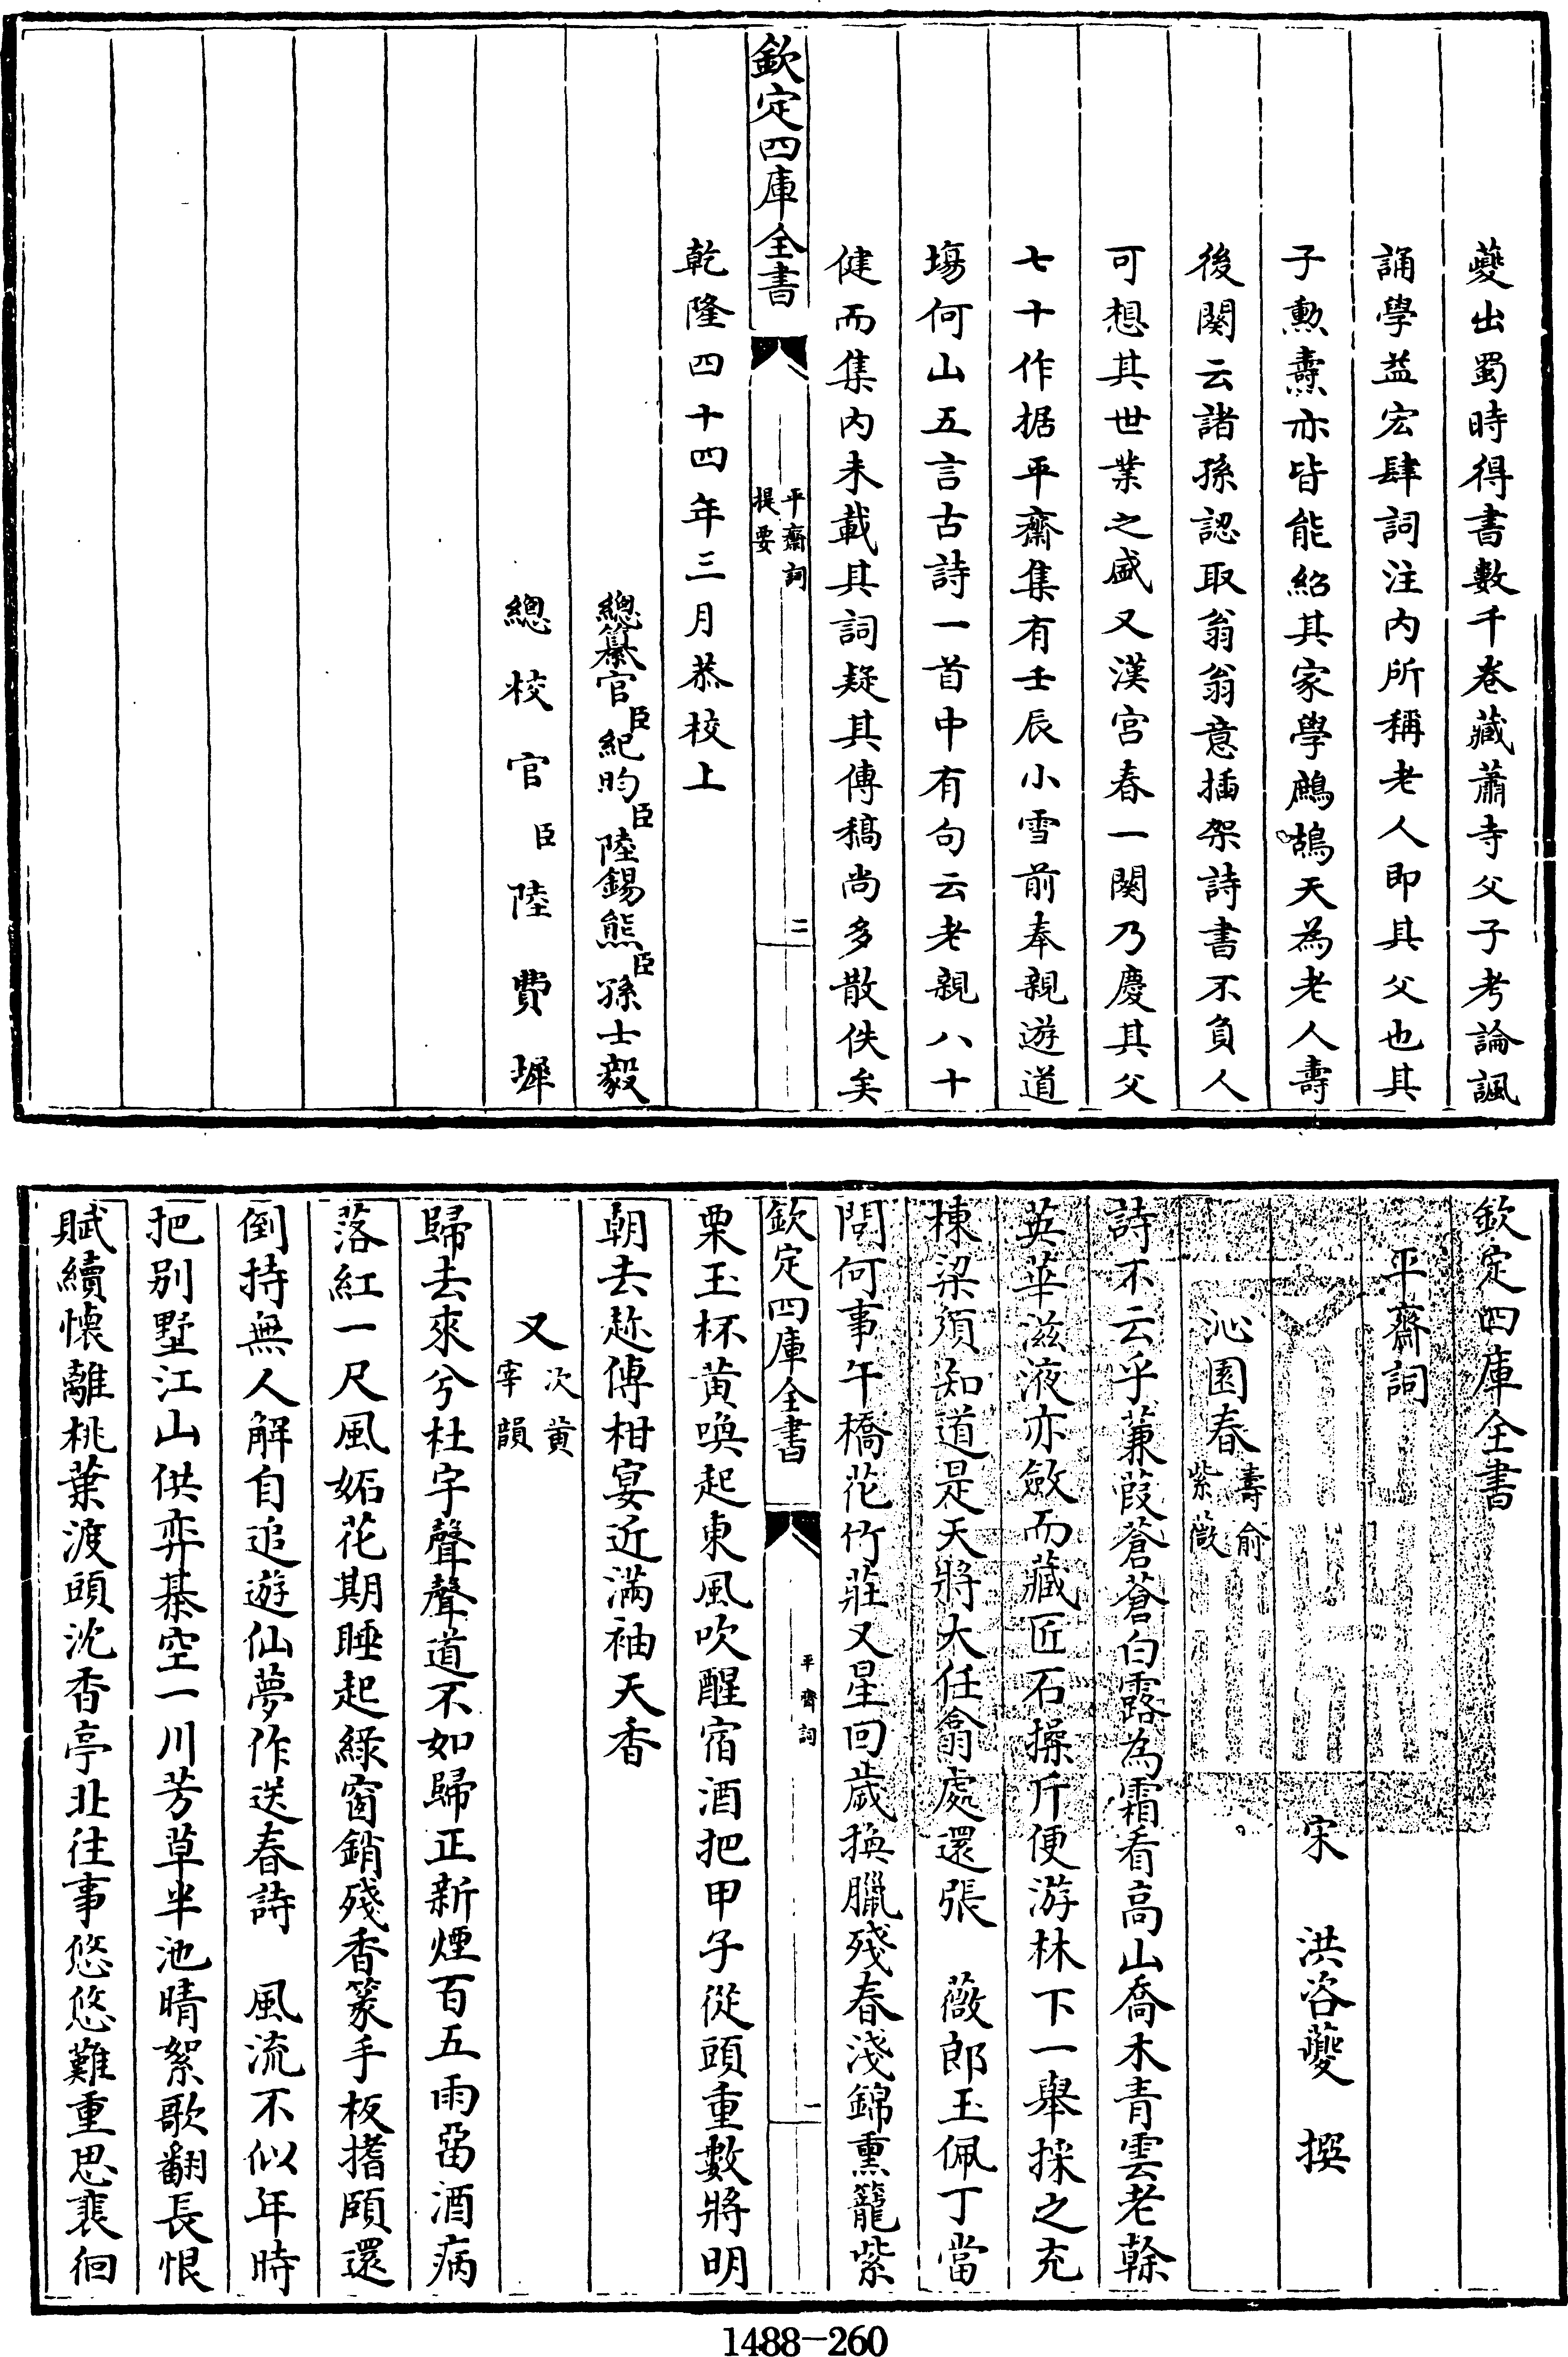 夔出蜀時得書數千卷藏蕭寺父子考論諷
誦學益宏肆詞注內所稱老人即其父也其
子勲燾亦皆能紹其家學鷓鴣天為老人壽
後闋云諸孫認取翁翁意插架詩書不負人
可想其世業之盛又漢宮春一闋乃慶其父
七十作据平齋集有壬辰小雪前奉親遊道
塲何山五言古詩一首中有句云老親八十
健而集內未載其詞疑其傳稿尚多散佚矣
欽定四庫全書
平齋詞
提要
二
乾隆四十四年三月恭校上
總纂官臣紀昀臣陸錫熊臣孫士毅
總校官臣陸費墀
欽定四庫全書
平齋詞
宋 洪咨夔 撰
沁園春壽俞
紫薇
詩不云乎蒹葭蒼蒼白露為霜看高山喬木青雲老榦
英華滋液亦斂而藏匠石操斤便游林下一舉採之充
棟梁須知道是天將大任翕處還張 薇郎玉佩丁當
問何事午橋花竹莊又星回歲換臘殘春淺錦熏籠紫
欽定四庫全書
平齋詞
一
栗玉杯黃喚起東風吹醒宿酒把甲子從頭重數將明
朝去趂傳柑宴近滿袖天香
又次黄
宰韻
歸去來兮杜宇聲聲道不如歸正新煙百五雨留酒病
落紅一尺風妬花期睡起綠窗銷殘香篆手板搘頤還
倒持無人解自追遊仙夢作送春詩 風流不似年時
把别墅江山供弈棊空一川芳草半池晴絮歌翻長恨
賦續懷離桃葉渡頭沈香亭北往事悠悠難重思裴徊
1488-260